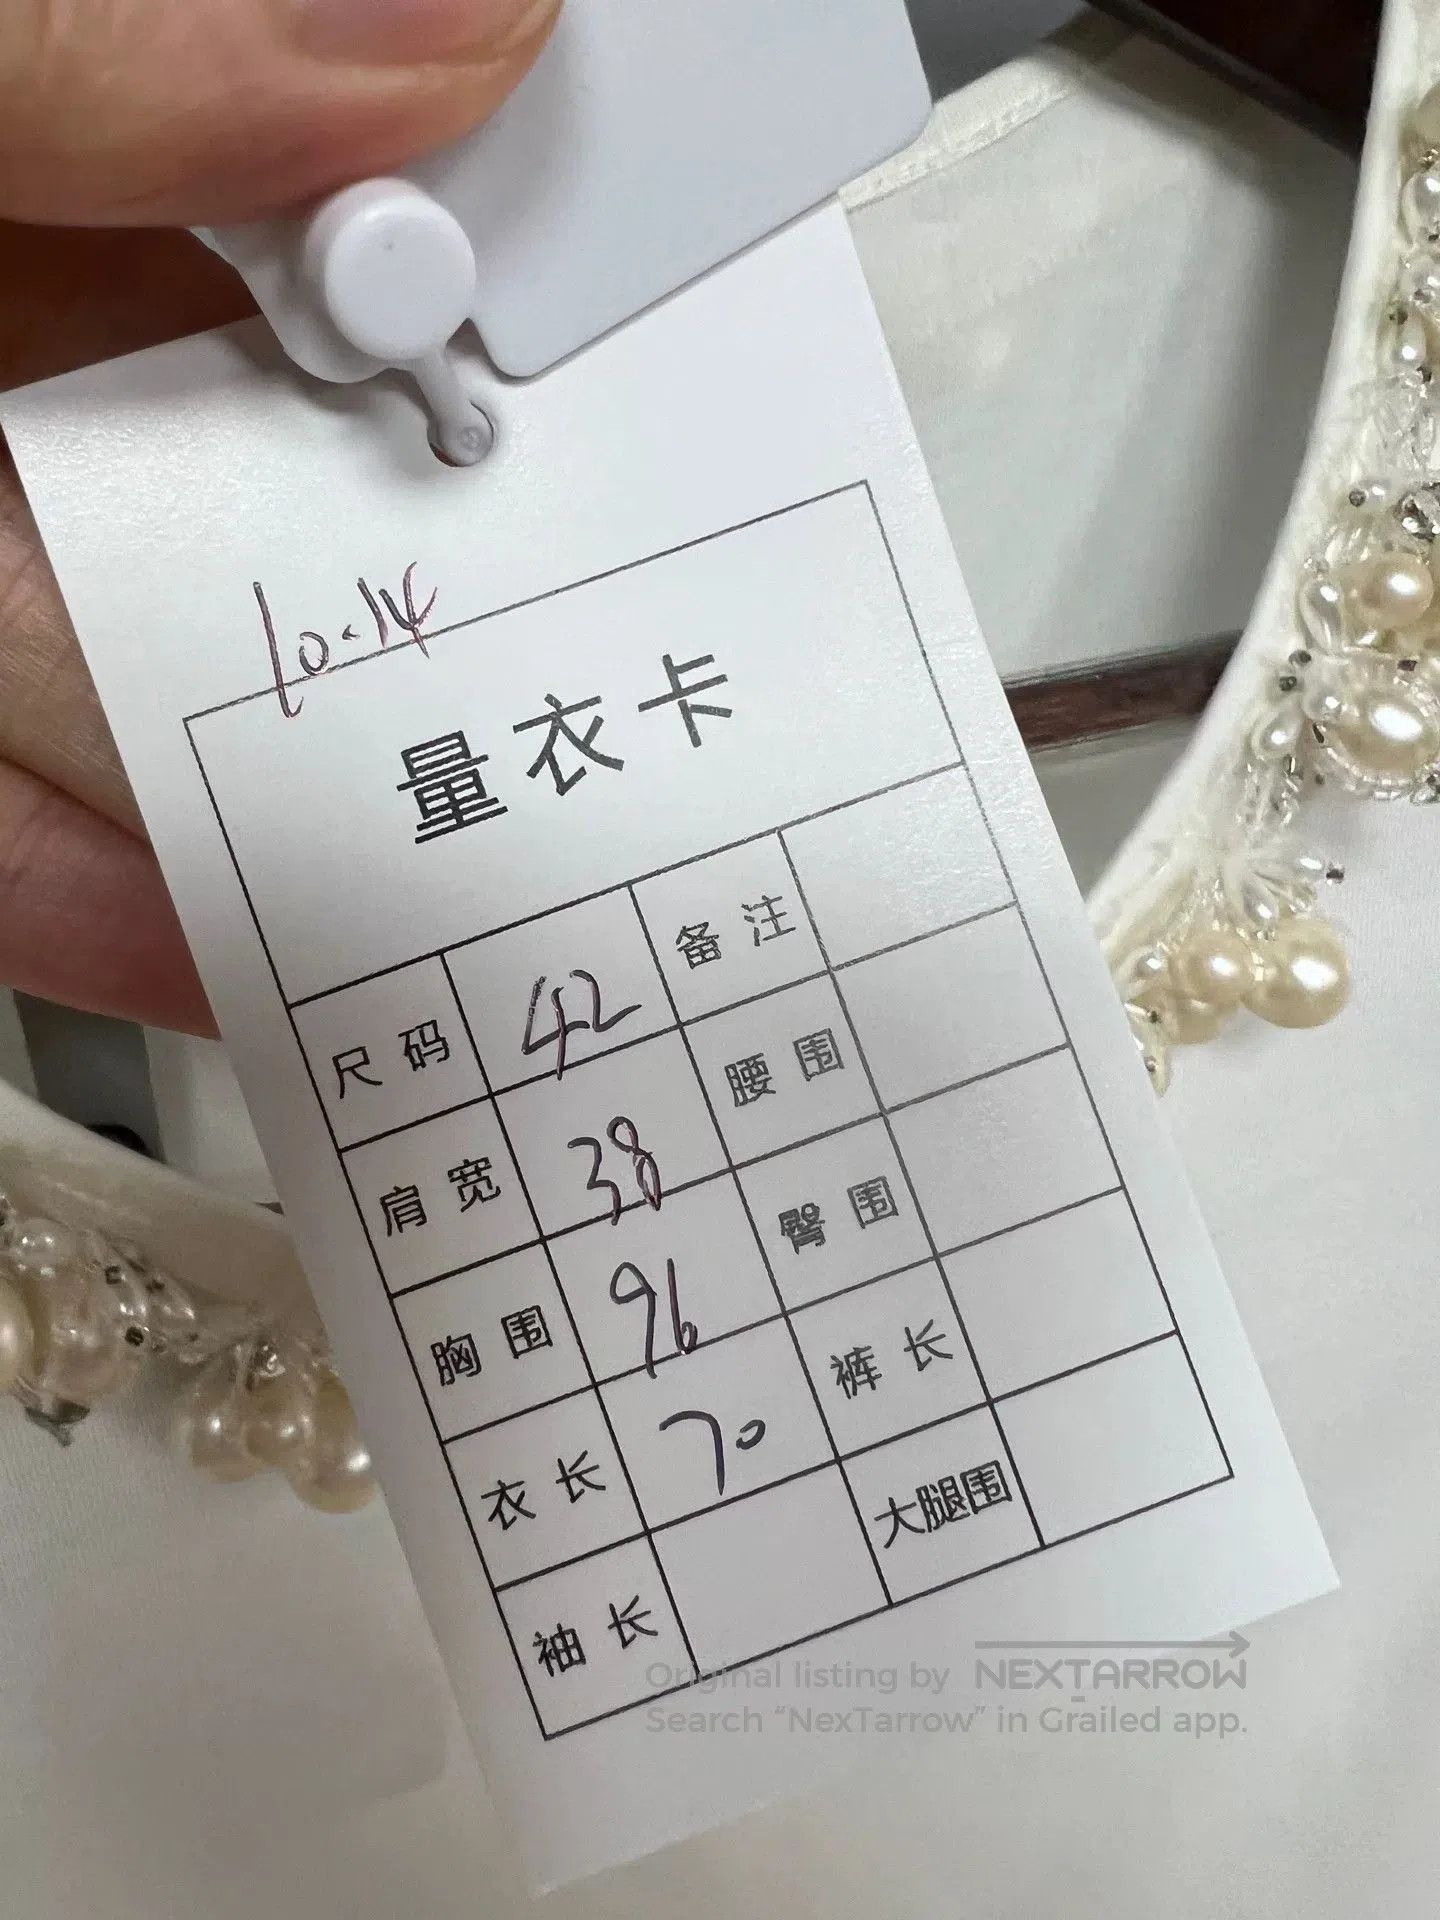 10.14
量衣卡
尺码 42 备注
肩宽 38 腰围
胸围 96 臀围
衣长 70 裤长
袖长 大腿围
Original listing by NEXTARROW
Search “NexTarrow” in Grailed app.